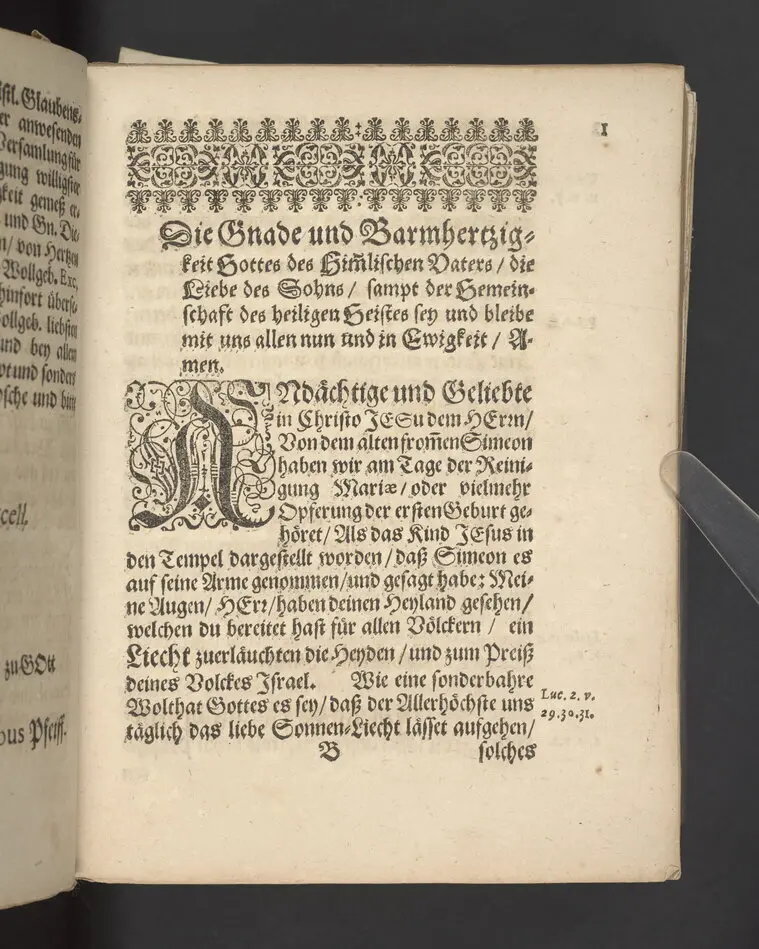 stl. Glaubens-
er anwesenden
Versamlung für
gung willigster
gkeit gemeß er-
und Gn. Die-
n/ von Hertzen
Wollgeb. Exc.
hinfort überf.
ollgeb. liebsten
und bey allen
pt und sonders
und bin
cell.
zu GOtt
bus Pfeiff.
1
Die Gnade und Barmhertzig-
keit Gottes des Him̃lischen Vaters / die
Liebe des Sohns / sampt der Gemein-
schaft des heiligen Geistes sey und bleibe
mit uns allen nun und in Ewigkeit / A-
men.
ANdächtige und Geliebte
in Christo JESu dem HErrn/
Von dem alten from̃en Simeon
haben wir am Tage der Reini-
gung Mariæ / oder vielmehr
Opferung der ersten Geburt ge-
höret / Als das Kind JEsus in
den Tempel dargestellt worden / daß Simeon es
auf seine Arme genommen / und gesagt habe: Mei-
ne Augen / HErr / haben deinen Heyland gesehen /
welchen du bereitet hast für allen Völckern / ein
Liecht zuerläuchten die Heyden / und zum Preiß
deines Volckes Israel. Wie eine sonderbahre
Wolthat Gottes es sey / daß der Allerhöchste uns
täglich das liebe Sonnen-Liecht lässet aufgehen /
Luc. 2. v.
29.30.31.
B solches